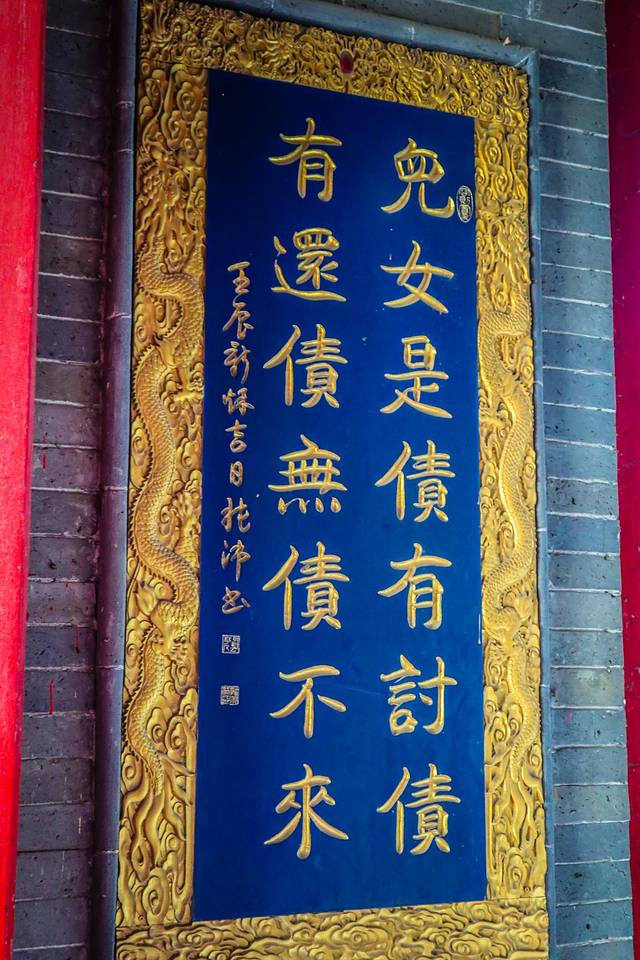 兒女是債有討債
有還債無債不來
壬辰新秋吉日沛书